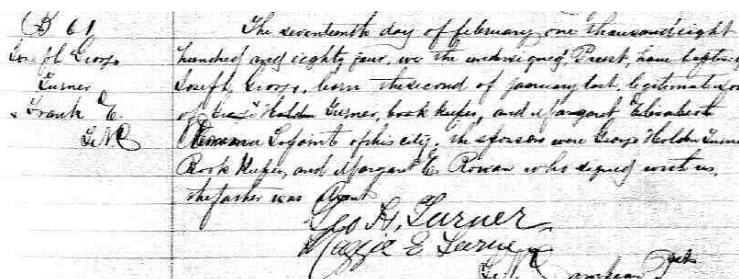 B 61
Joseph George
Turner
Frank E.
The seventeenth day of february one thousand eight
hundred and eighty four, we the undersigned Priest, have baptised
Joseph, George, born the second of january last, legitimate son
of Holden Turner, book keeper, and Margaret Elisabeth
Lapointe of this city. the sponsors were George Holden Turner
Book Keeper, and Margaret E. Rowan who signed with us,
the father was absent
Geo H. Turner
Maggie E Turner